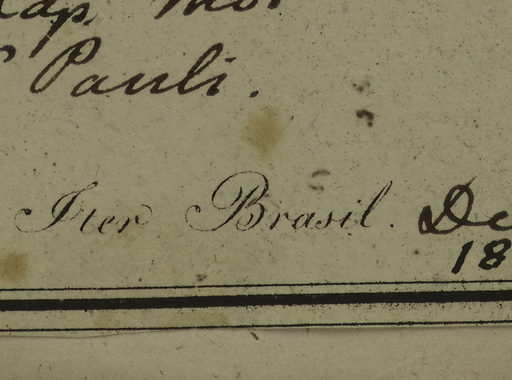 Pauli.
Iter Brasil.
18